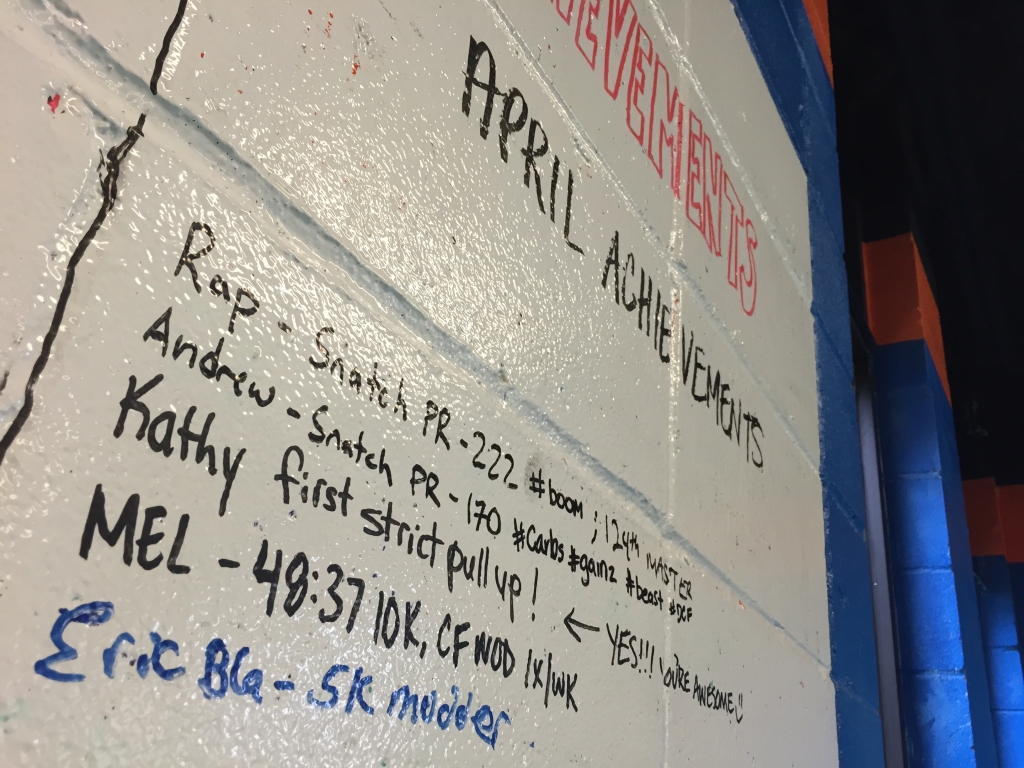 EVEMENTS
APRIL ACHIEVEMENTS
Rap - Snatch PR - 222 #boom ; 124th MASTER
Andrew - Snatch PR - 170 #Carbs #gainz #beast #DCF
Kathy first strict pull up! ← YES!!! YOU'RE AWESOME
MEL - 48:37 10K, CF WOD 1x/WK
Eric Bla - 5K mudder